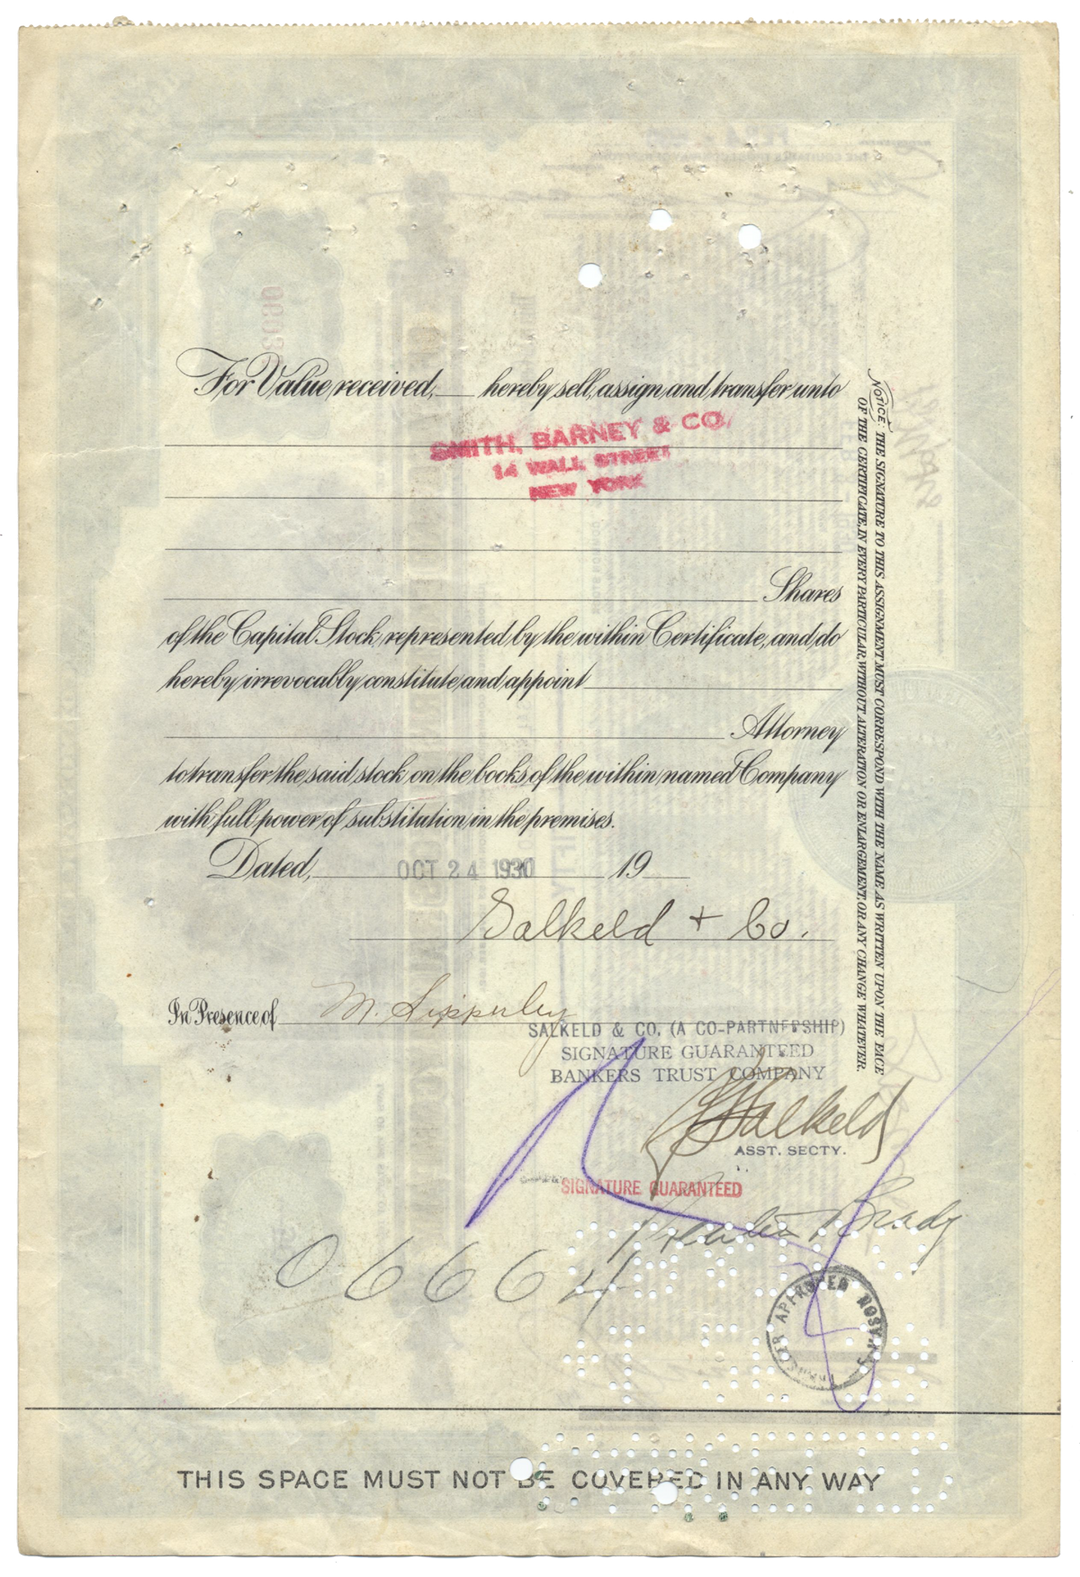 For Value received, hereby sell, assign and transfer unto
SMITH, BARNEY & CO.
14 WALL STREET
NEW YORK
Shares
of the Capital Stock represented by the within Certificate, and do
hereby irrevocably constitute and appoint
Attorney
to transfer the said stock on the books of the within named Company
with full power of substitution in the premises.
Dated, OCT 24 1930 19
Salkeld + Co.
In Presence of M.
SALKELD & CO. (A CO-PARTNERSHIP)
SIGNATURE GUARANTEED
BANKERS TRUST COMPANY
Salkeld
ASST. SECTY.
SIGNATURE GUARANTEED
Brady
06664
THIS SPACE MUST NOT BE COVERED IN ANY WAY
NOTICE: THE SIGNATURE TO THIS ASSIGNMENT MUST CORRESPOND WITH THE NAME AS WRITTEN UPON THE FACE
OF THE CERTIFICATE, IN EVERY PARTICULAR, WITHOUT ALTERATION OR ENLARGEMENT, OR ANY CHANGE WHATEVER.